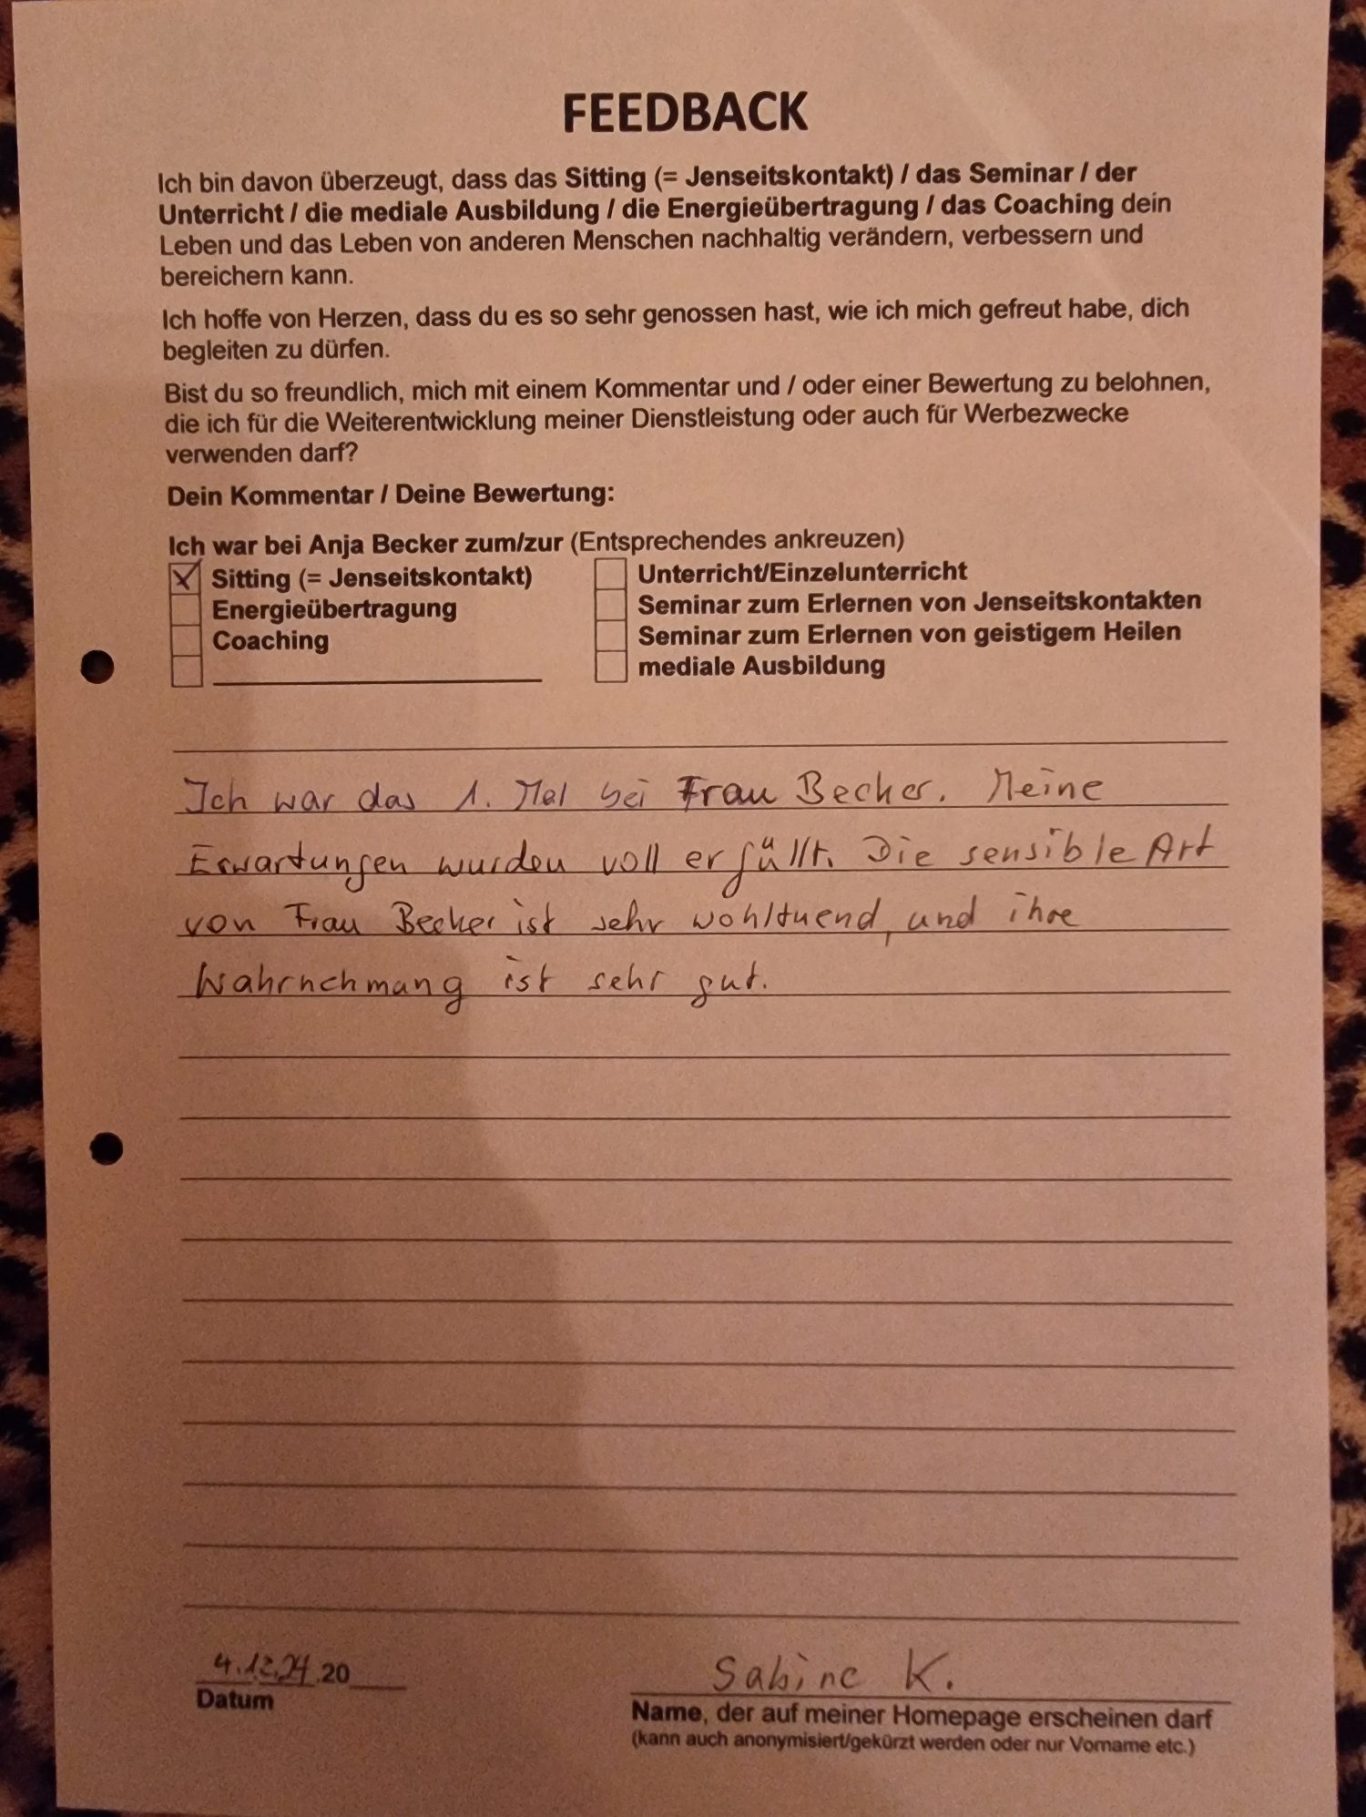 FEEDBACK
Ich bin davon überzeugt, dass das Sitting (= Jenseitskontakt) / das Seminar / der
Unterricht / die mediale Ausbildung / die Energieübertragung / das Coaching dein
Leben und das Leben von anderen Menschen nachhaltig verändern, verbessern und
bereichern kann.
Ich hoffe von Herzen, dass du es so sehr genossen hast, wie ich mich gefreut habe, dich
begleiten zu dürfen.
Bist du so freundlich, mich mit einem Kommentar und / oder einer Bewertung zu belohnen,
die ich für die Weiterentwicklung meiner Dienstleistung oder auch für Werbezwecke
verwenden darf?
Dein Kommentar / Deine Bewertung:
Ich war bei Anja Becker zum/zur (Entsprechendes ankreuzen)
Sitting (= Jenseitskontakt)
Energieübertragung
Coaching
Unterricht/Einzelunterricht
Seminar zum Erlernen von Jenseitskontakten
Seminar zum Erlernen von geistigem Heilen
mediale Ausbildung
Ich war das 1. Mal bei Frau Becker. Meine
Erwartungen wurden voll erfüllt. Die sensible Art
von Frau Becker ist sehr wohltuend, und ihre
Wahrnehmung ist sehr gut.
4.12.24.20
Datum
Sabine K.
Name, der auf meiner Homepage erscheinen darf
(kann auch anonymisiert/gekürzt werden oder nur Vorname etc.)